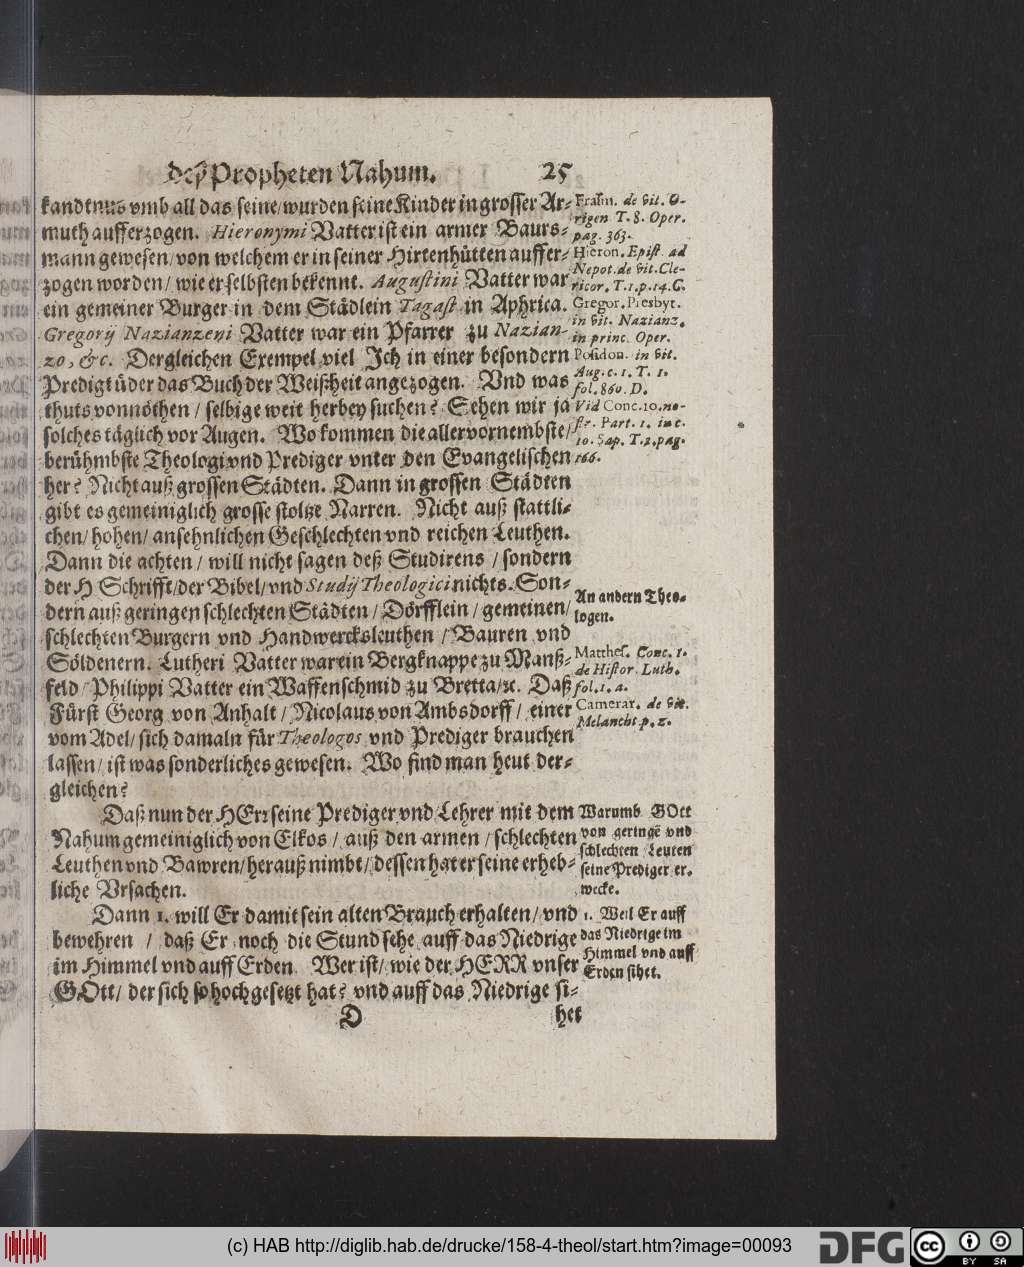 deß Propheten Nahum. 25
kandtnus vmb all das seine/wurden seine Kinder in grosser Ar-
muth aufferzogen. Hieronymi Vatter ist ein armer Baurs-
mann gewesen/von welchem er in seiner Hirtenhütten auffer-
zogen worden/ wie er selbsten bekennt. Augustini Vatter war
ein gemeiner Burger in dem Städlein Tagast in Aphrica.
Gregorij Nazianzeni Vatter war ein Pfarrer zu Nazian-
zo, &c. Dergleichen Exempel viel Ich in einer besondern
Predigt über das Buch der Weißheit angezogen. Vnd was
thuts vonnöthen / selbige weit herbey suchen? Sehen wir ja
solches täglich vor Augen. Wo kommen die allervornembste/
berühmbste Theologi vnd Prediger vnter den Evangelischen
her? Nicht auß grossen Städten. Dann in grossen Städten
gibt es gemeiniglich grosse stoltze Narren. Nicht auß stattli-
chen/ hohen/ ansehnlichen Geschlechten vnd reichen Leuthen.
Dann die achten / will nicht sagen deß Studirens / sondern
der H Schrifft/der Bibel/vnd Studij Theologici nichts. Son-
dern auß geringen schlechten Städten / Dörfflein / gemeinen/
schlechten Burgern vnd Handwercksleuthen / Bauren vnd
Söldenern. Lutheri Vatter war ein Bergknappe zu Manß-
feld / Philippi Vatter ein Waffenschmid zu Bretta/ꝛc. Daß
Fürst Georg von Anhalt / Nicolaus von Ambsdorff / einer
vom Adel/ sich damaln für Theologos vnd Prediger brauchen
lassen/ ist was sonderliches gewesen. Wo find man heut der-
gleichen?
Daß nun der HErꝛ seine Prediger vnd Lehrer mit dem
Nahum gemeiniglich von Elkos / auß den armen / schlechten
Leuthen vnd Bawren/herauß nimbt/ dessen hat er seine erheb-
liche Vrsachen.
Dann 1. will Er damit sein alten Brauch erhalten/ vnd
bewehren / daß Er noch die Stund sehe auff das Niedrige
im Himmel vnd auff Erden. Wer ist/ wie der HERR vnser
GOtt/ der sich so hoch gesetzt hat? vnd auff das Niedrige si-
D het
Erasm. de vit. O-
rigen T. 8. Oper.
pag. 363.
Hieron. Epist. ad
Nepot. de vit. Cle-
ricor. T. 1. p. 14. C.
Gregor. Presbyt.
in vit. Nazianz.
in princ. Oper.
Posidon. in vit.
Aug. c. 1. T. 1.
fol. 860. D.
Vid Conc. 10. no-
str. Part. 1. in c.
10. Sap. T. 2. pag.
166.
An andern Theo-
logen.
Matthes. Conc. 1.
de Histor. Luth.
fol. 1. a.
Camerar. de vit.
Melancht p. 2.
Warumb GOtt
von geringē vnd
schlechten Leuten
seine Prediger er-
wecke.
1. Weil Er auff
das Niedrige im
Himmel vnd auff
Erden sihet.
(c) HAB http://diglib.hab.de/drucke/158-4-theol/start.htm?image=00093
DFG
cc
BY SA